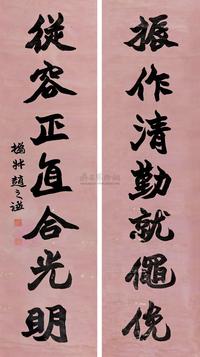 振作清勤就繩俛
從容正直合光明
撝叔趙之謙